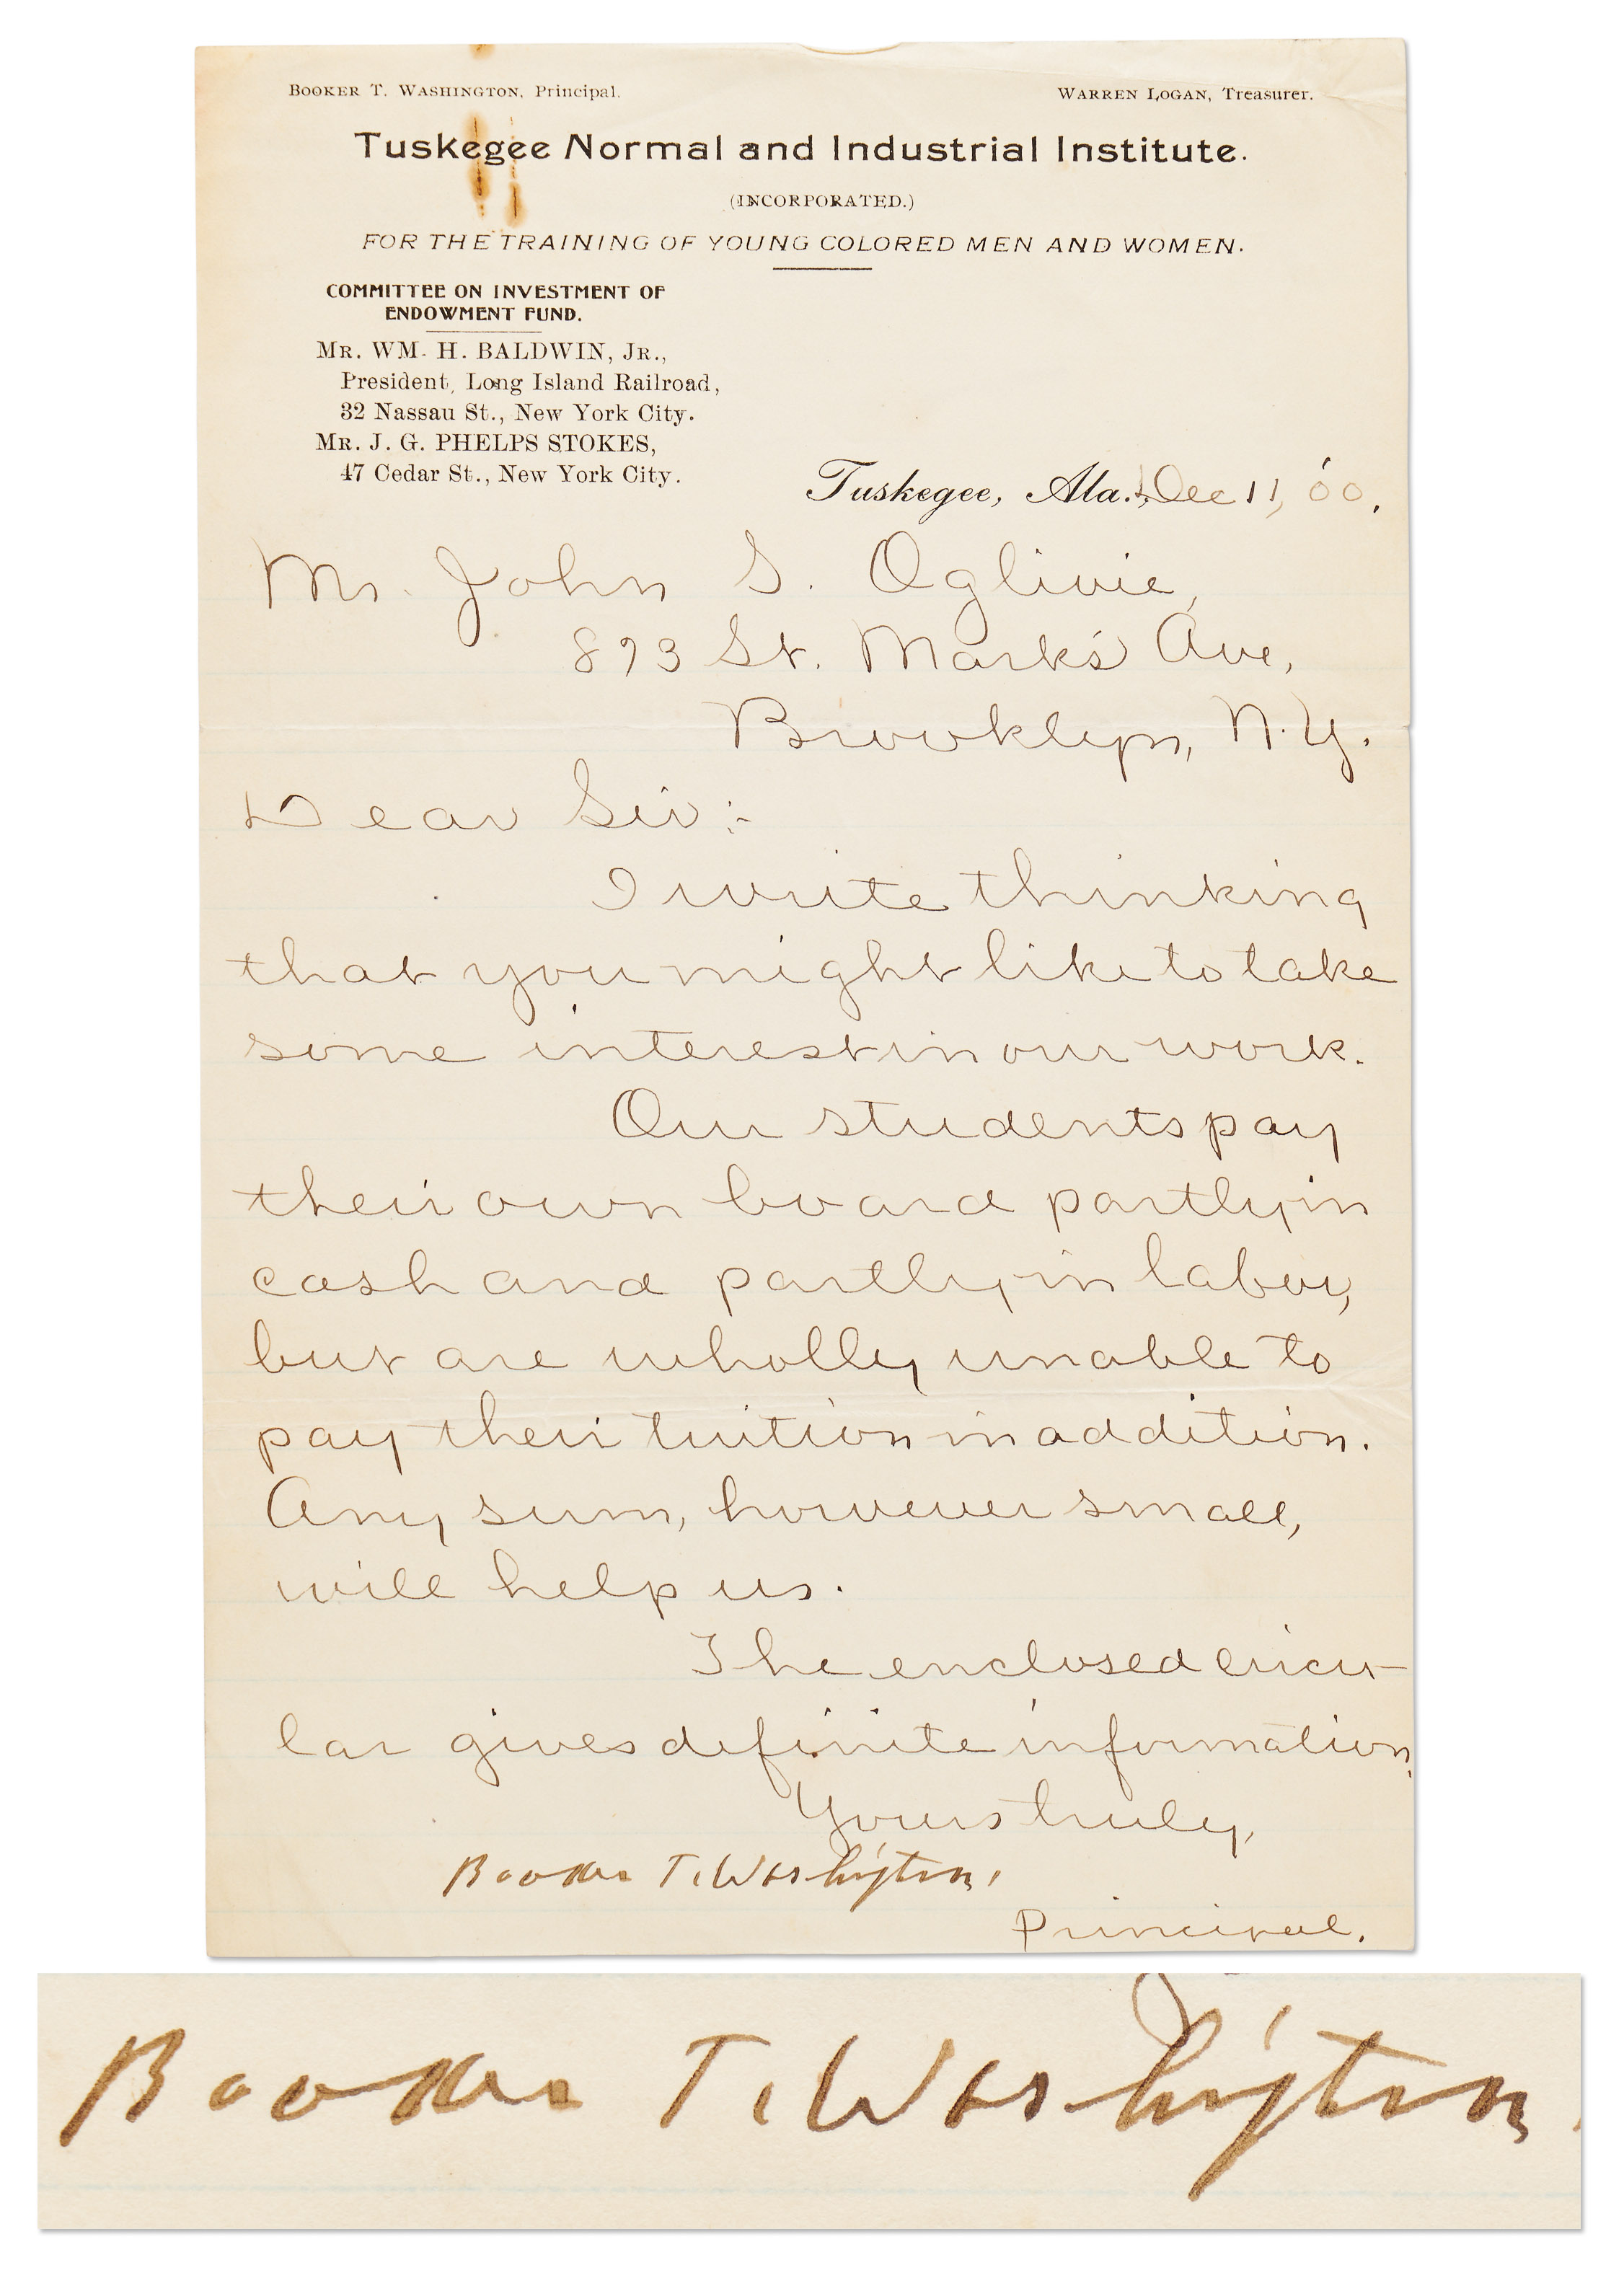 BOOKER T. WASHINGTON, Principal.
WARREN LOGAN, Treasurer.
Tuskegee Normal and Industrial Institute.
(INCORPORATED.)
FOR THE TRAINING OF YOUNG COLORED MEN AND WOMEN.
COMMITTEE ON INVESTMENT OF
ENDOWMENT FUND.
MR. WM. H. BALDWIN, JR.,
President, Long Island Railroad,
32 Nassau St., New York City.
MR. J. G. PHELPS STOKES,
47 Cedar St., New York City.
Tuskegee, Ala., Dec 11, '00.
Mr. John S. Oglivie,
893 St. Mark's Ave,
Brooklyn, N.Y.
Dear Sir:-
I write thinking
that you might like to take
some interest in our work.
Our students pay
their own board partly in
cash and partly in labor,
but are wholly unable to
pay their tuition in addition.
Any sum, however small,
will help us.
The enclosed circu-
lar gives definite information.
Yours truly,
Booker T. Washington,
Principal.
Booker T. Washington